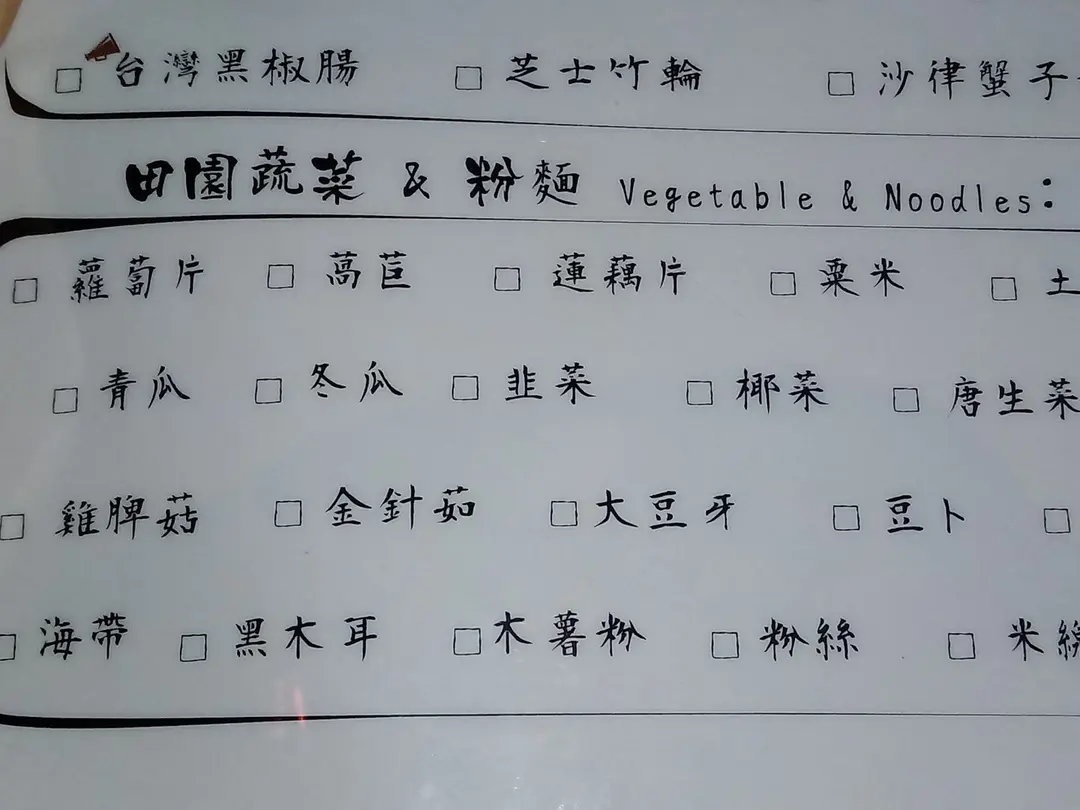 □ 台灣黑椒腸 □ 芝士竹輪 □ 沙律蟹子
田園蔬菜 & 粉麵 Vegetable & Noodles:
□ 蘿蔔片 □ 萵苣 □ 蓮藕片 □ 粟米 □ 土
□ 青瓜 □ 冬瓜 □ 韭菜 □ 椰菜 □ 唐生菜
□ 雞脾菇 □ 金針茹 □ 大豆牙 □ 豆卜 □
□ 海帶 □ 黑木耳 □ 木薯粉 □ 粉絲 □ 米線